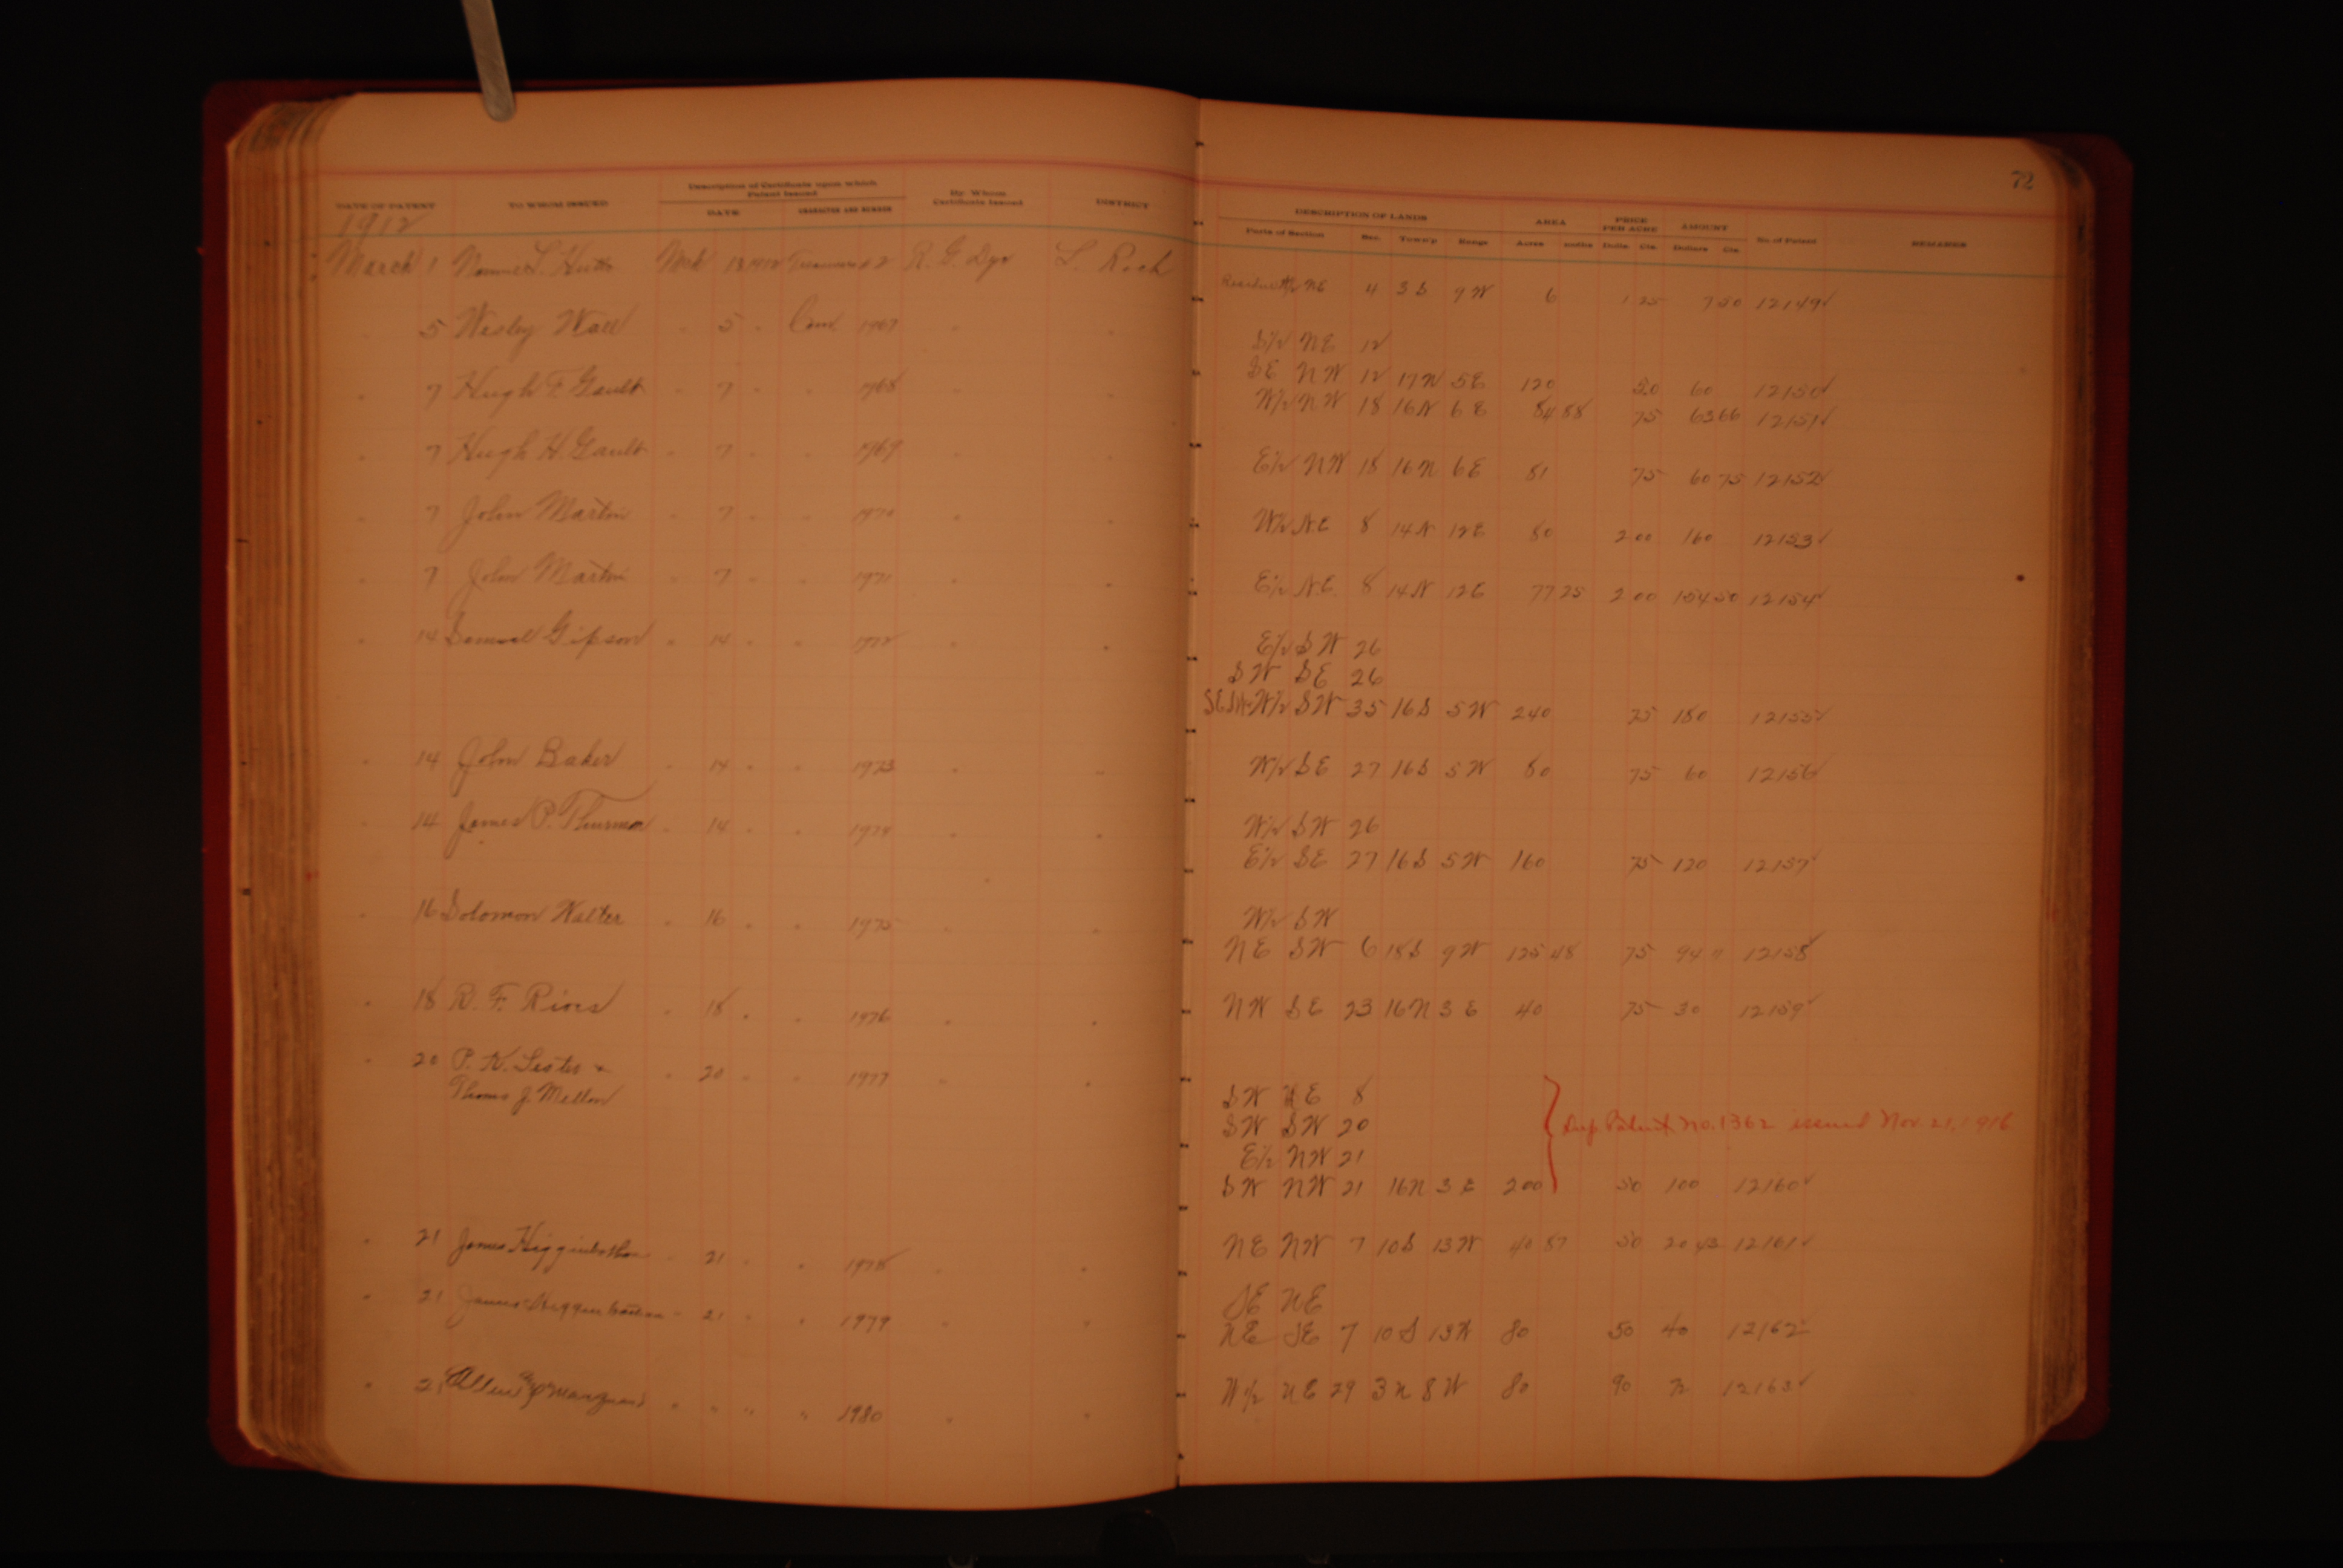 72
DATE OF PATENT TO WHOM ISSUED Description of Certificate upon which Patent Issued DATE CHARACTER AND NUMBER By Whom Certificate Issued DISTRICT DESCRIPTION OF LANDS Parts of Section Sec. Town'p Range AREA Acres PRICE PER ACRE Dolls. Cts. AMOUNT Dollars Cts. No. of Patent REMARKS
1912
March 1 L. Mch 1912 R. G. Dye L. Rock NE 4 3 S 9 W 6 1 25 7 50 12149
5 Wesley Wall " 5 " Com 1967 " " S½ NE 12
SE NW 12 17N 5E 120 50 60 12150
7 Hugh F. Gault " 7 " " 1968 " " W½ NW 18 16N 6E 84 88 75 63 66 12151
7 Hugh H. Gault " 7 " " 1969 " " E½ NW 18 16N 6E 81 75 60 75 12152
7 John Martin " 7 " " 1970 " " W½ NE 8 14N 12E 80 2 00 160 12153
7 John Martin " 7 " " 1971 " " E½ N.E. 8 14N 12E 77 25 2 00 154 50 12154
14 Samuel Gipson " 14 " " 1972 " " E½ SW 26
SW SE 26
W½ SW 35 16S 5W 240 75 180 12155
14 John Baker " 14 " " 1973 " " W½ SE 27 16S 5W 80 75 60 12156
14 James P. Thurman " 14 " " 1974 " " W½ SW 26
E½ SE 27 16S 5W 160 75 120 12157
16 Solomon Walter " 16 " " 1975 " " W½ SW
NE SW 6 18S 9W 125 48 75 94 11 12158
18 R. F. Rives " 18 " " 1976 " " NW SE 23 16N 3E 40 75 30 12159
20 P. K. Lester &
Thomas J. Mellon " 20 " " 1977 " " SW NE 8
SW SW 20 Patent No. 1362 issued Nov. 21, 1916
E½ NW 21
SW NW 21 16N 3E 200 50 100 12160
21 James Higginbotham " 21 " " 1978 " " NE NW 7 10S 13W 40 87 50 20 43 12161
21 James Higginbotham " 21 " " 1979 " " SE NE
NE SE 7 10S 13W 80 50 40 12162
21 Allen " " " " 1980 " " W½ NE 29 3N 8W 80 90 72 12163